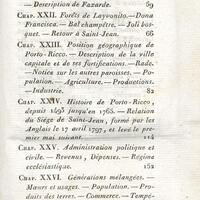 — Description de Faxarde. 69
CHAP. XXII. Forêts de Layvonito. — Dona
Francisca. — Bal champêtre. — Joli bos-
quet. — Retour à Saint-Jean. 66
CHAP. XXIII. Position géographique de
Porto-Ricco. — Description de la ville
capitale et de ses fortifications. — Rade.
— Notice sur les autres paroisses. — Po-
pulation. — Agriculture. — Productions.
— Industrie. 82
CHAP. XXIV. Histoire de Porto-Ricco,
depuis 1493 jusqu'en 1765. — Relation
du Siège de Saint-Jean, formé par les
Anglais le 17 avril 1797, et levé le pre-
mier mai suivant. 114
CHAP. XXV. Administration politique et
civile. — Revenus, Dépenses. — Régime
ecclésiastique. 152
CHAP. XXVI. Générations mélangées. —
Mœurs et usages. — Population. — Pro-
duits des terres. — Commerce. — Tempé-